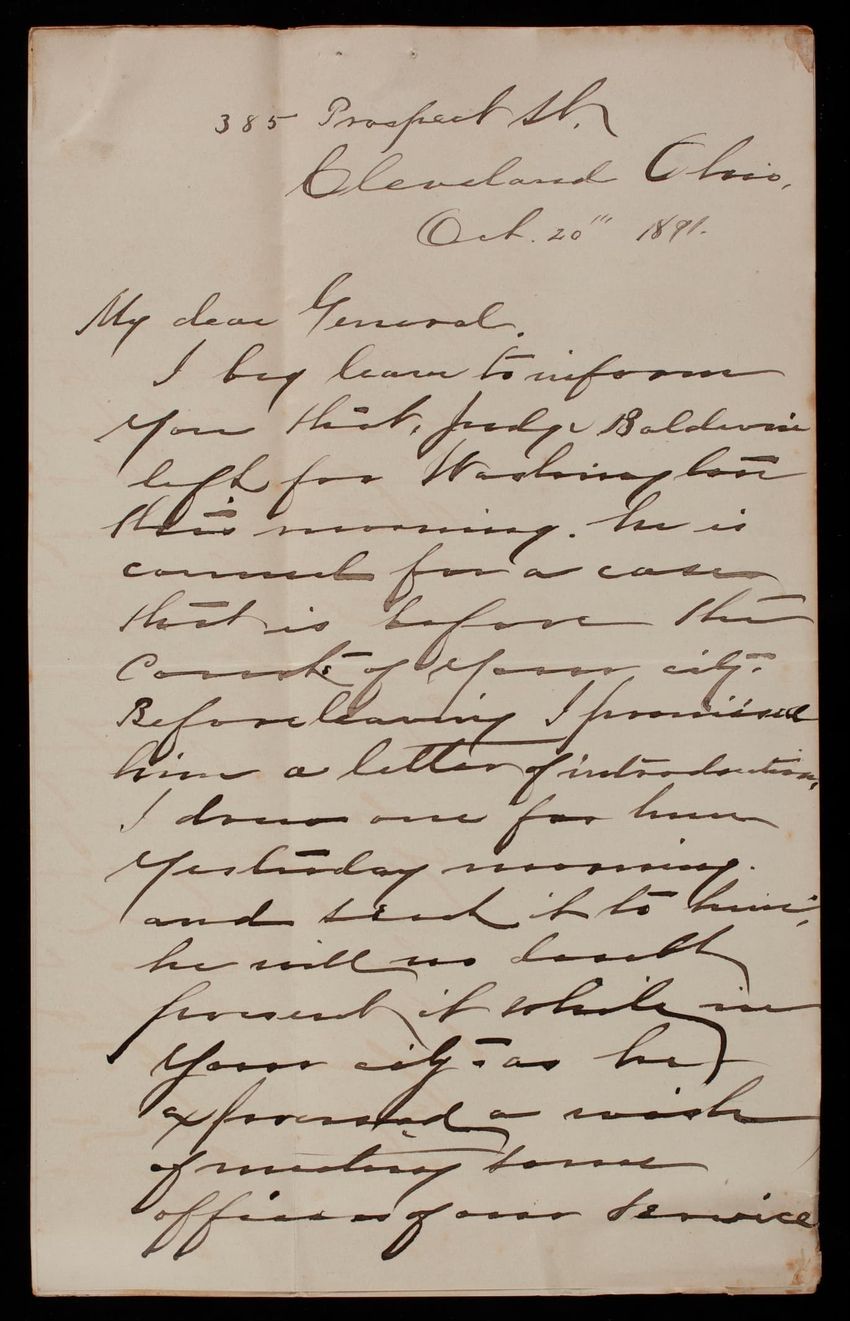 385 Prospect St.
Cleveland Ohio,
Oct. 20th 1891.
My dear General.
I beg leave to inform
you that, Judge Baldwin
left for Washington
this morning. he is
counsel for a case
that is before the
Court of your city.
Before leaving I promised
him a letter of introduction,
I drew one for him
yesterday morning.
and send it to him,
he will no doubt
present it while in
your city - as he
expressed a wish
of meeting some
officers of our service